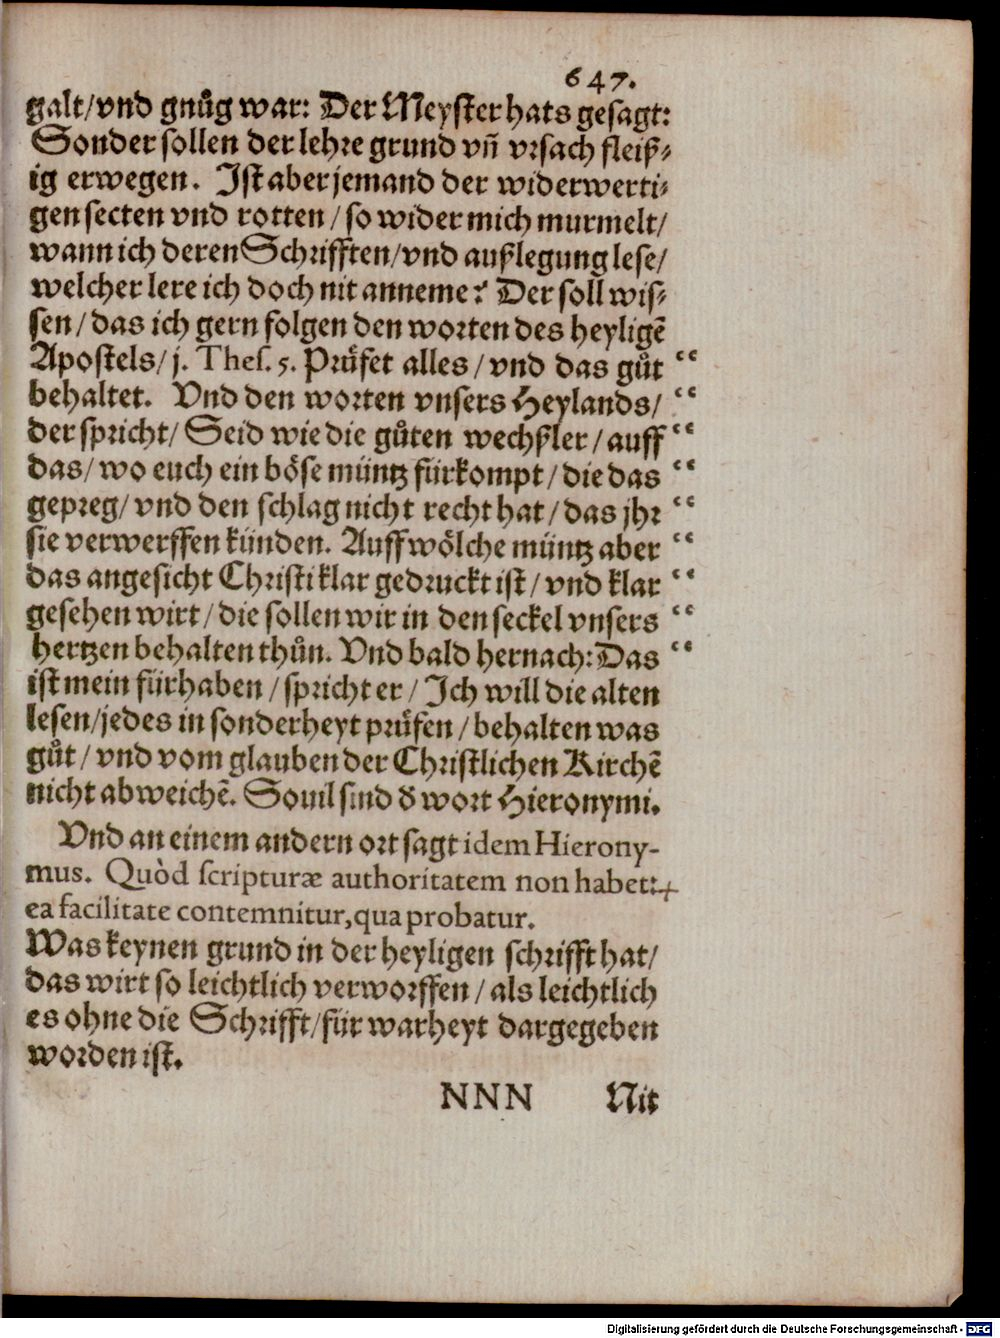 647.
galt/vnd gnůg war: Der Meyster hats gesagt:
Sonder sollen der lehre grund vñ vrsach fleiß⸗
ig erwegen. Ist aber jemand der widerwerti⸗
gen secten vnd rotten/so wider mich murmelt/
wann ich deren Schrifften/vnd außlegung lese/
welcher lere ich doch nit anneme? Der soll wis⸗
sen/das ich gern folgen den worten des heyligē
Apostels/j. Thes. 5. Průfet alles/vnd das gůt “
behaltet. Vnd den worten vnsers Heylands/ “
der spricht/Seid wie die gůten wechßler/auff “
das/wo euch ein böse müntz fürkompt/die das “
gepreg/vnd den schlag nicht recht hat/das jhr “
sie verwerffen künden. Auff wölche müntz aber “
das angesicht Christi klar gedruckt ist/vnd klar “
gesehen wirt/die sollen wir in den seckel vnsers “
hertzen behalten thůn. Vnd bald hernach: Das “
ist mein fürhaben/spricht er/Ich will die alten
lesen/jedes in sonderheyt průfen/behalten was
gůt/vnd vom glauben der Christlichen Kirchē
nicht abweichē. Souil sind d̕ wort Hieronymi.
Vnd an einem andern ort sagt idem Hierony-
mus. Quòd scripturæ authoritatem non habet: +
ea facilitate contemnitur, qua probatur.
Was keynen grund in der heyligen schrifft hat/
das wirt so leichtlich verworffen/als leichtlich
es ohne die Schrifft/für warheyt dargegeben
worden ist.
NNN Nit
Digitalisierung gefördert durch die Deutsche Forschungsgemeinschaft - DFG